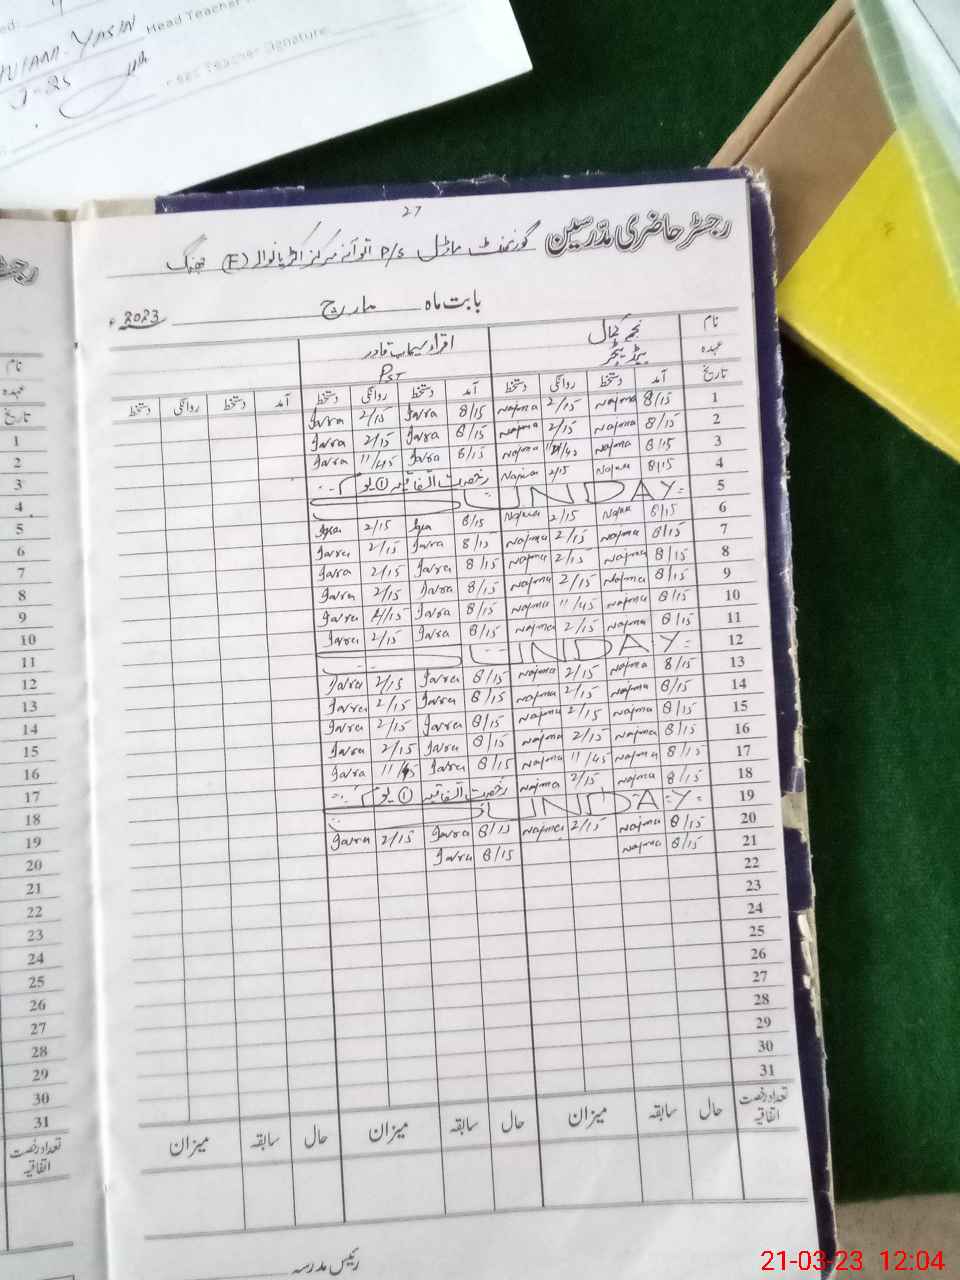 Head Teacher
Head Teacher Signature
27
رجسٹر حاضری مدرسین گورنمنٹ ماڈل P/S مرکز (F) جھنگ
بابت ماہ مارچ 2023ء
نام نجم کمال
عہدہ ہیڈ ٹیچر PST
تاریخ آمد دستخط روانگی دستخط آمد دستخط روانگی دستخط آمد دستخط روانگی دستخط
1 8/15 Najma 2/15 Najma 8/15 Javra 2/15 Javra
2 8/15 Najma 2/15 Najma 8/15 Javra 2/15 Javra
3 8/15 Najma 11/45 Najma 8/15 Javra 11/45 Javra
4 8/15 Najma 2/15 Najma رخصت اتفاقیہ ① یوم
5 SUNDAY
6 8/15 Najma 2/15 Najma 8/15 2/15
7 8/15 Najma 2/15 Najma 8/15 Javra 2/15 Javra
8 8/15 Najma 2/15 Najma 8/15 Javra 2/15 Javra
9 8/15 Najma 2/15 Najma 8/15 Javra 2/15 Javra
10 8/15 Najma 11/45 Najma 8/15 Javra Javra
11 8/15 Najma 2/15 Najma 8/15 Javra 2/15 Javra
12 SUNDAY
13 8/15 Najma 2/15 Najma 8/15 Javra 2/15 Javra
14 8/15 Najma 2/15 Najma 8/15 Javra 2/15 Javra
15 8/15 Najma 2/15 Najma 8/15 Javra 2/15 Javra
16 8/15 Najma 2/15 Najma 8/15 Javra 2/15 Javra
17 8/15 Najma 11/45 Najma 8/15 Javra 11/45 Javra
18 8/15 Najma 2/15 Najma رخصت اتفاقیہ ① یوم
19 SUNDAY
20 8/15 Najma 2/15 Najma 8/15 Javra 2/15 Javra
21 8/15 Najma 8/15 Javra
22
23
24
25
26
27
28
29
30
31
تعداد رخصت اتفاقیہ حال سابقہ میزان حال سابقہ میزان حال سابقہ میزان
رئیس مدرسہ
نام
عہدہ
تاریخ
1
2
3
4
5
6
7
8
9
10
11
12
13
14
15
16
17
18
19
20
21
22
23
24
25
26
27
28
29
30
31
تعداد رخصت
اتفاقیہ
21-03-23 12:04